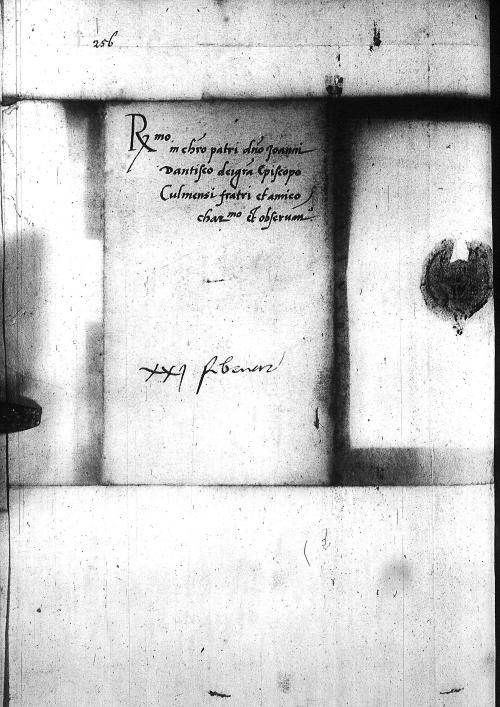 256
Rx mo
in chro patri dno Joanni
Dantisco dei gra Episcopo
Culmensi fratri et amico
char mo et obseruan
xxj febru